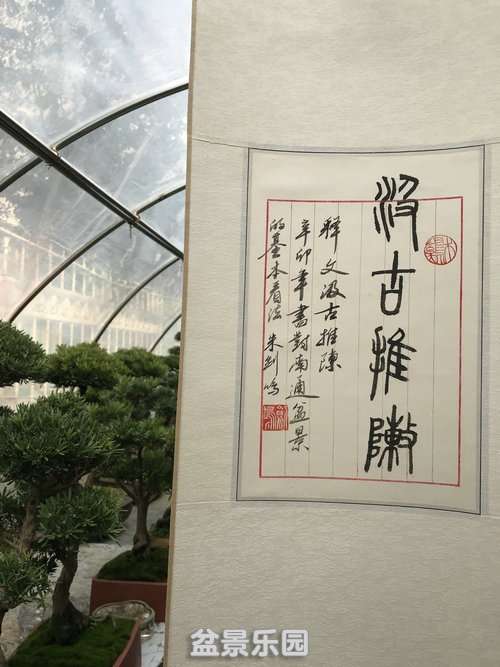 汲古推陳
釋文汲古推陳
辛卯年書對南通盆景
的基本看法 朱剑鸣
盆景乐园